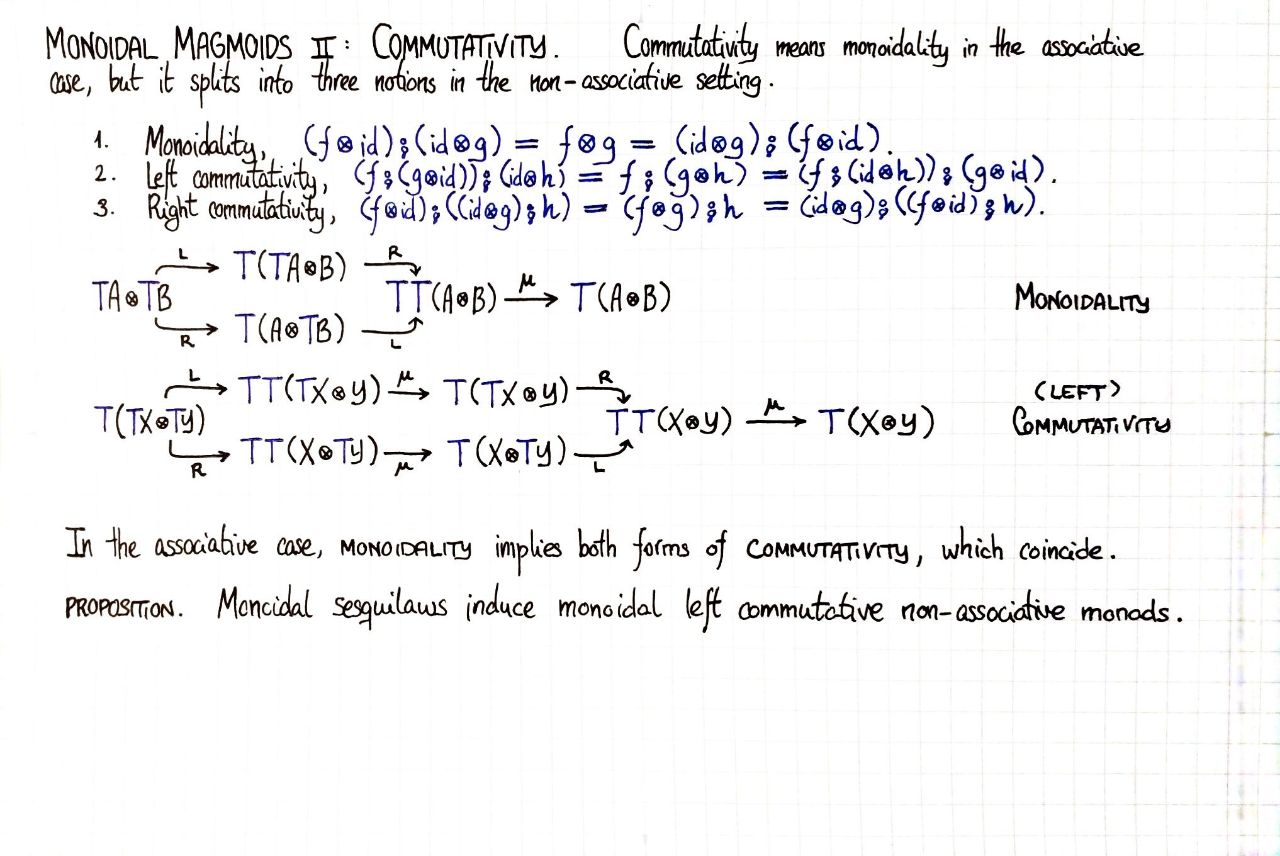 MONOIDAL MAGMOIDS II: COMMUTATIVITY. Commutativity means monoidality in the associative
case, but it splits into three notions in the non-associative setting.
1. Monoidality, (f⊗id)⨾(id⊗g) = f⊗g = (id⊗g)⨾(f⊗id).
2. Left commutativity, (f⨾(g⊗id))⨾(id⊗h) = f⨾(g⊗h) = (f⨾(id⊗h))⨾(g⊗id).
3. Right commutativity, (f⊗id)⨾((id⊗g)⨾h) = (f⊗g)⨾h = (id⊗g)⨾((f⊗id)⨾h).
L T(TA⊗B) R
TA⊗TB TT(A⊗B) μ→ T(A⊗B) MONOIDALITY
R T(A⊗TB) L
L TT(TX⊗Y) μ→ T(TX⊗Y) R (LEFT)
T(TX⊗TY) TT(X⊗Y) μ→ T(X⊗Y) COMMUTATIVITY
R TT(X⊗TY) μ→ T(X⊗TY) L
In the associative case, MONOIDALITY implies both forms of COMMUTATIVITY, which coincide.
PROPOSITION. Monoidal sesquilaws induce monoidal left commutative non-associative monads.